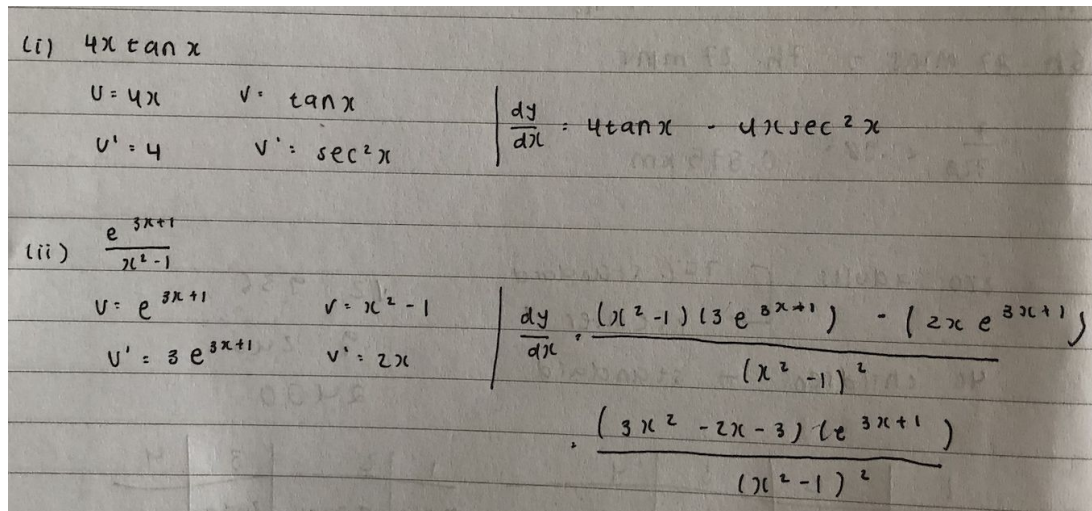 (i) 4x tan x
U = 4x V = tan x
U' = 4 V' = sec²x
dy/dx = 4tan x - 4x sec² x
(ii) e^(3x+1) / x² - 1
U = e^(3x+1) V = x² - 1
U' = 3 e^(3x+1) V' = 2x
dy/dx = (x² - 1)(3 e^(3x+1)) - (2x e^(3x+1)) / (x² - 1)²
= (3x² - 2x - 3)(e^(3x+1)) / (x² - 1)²